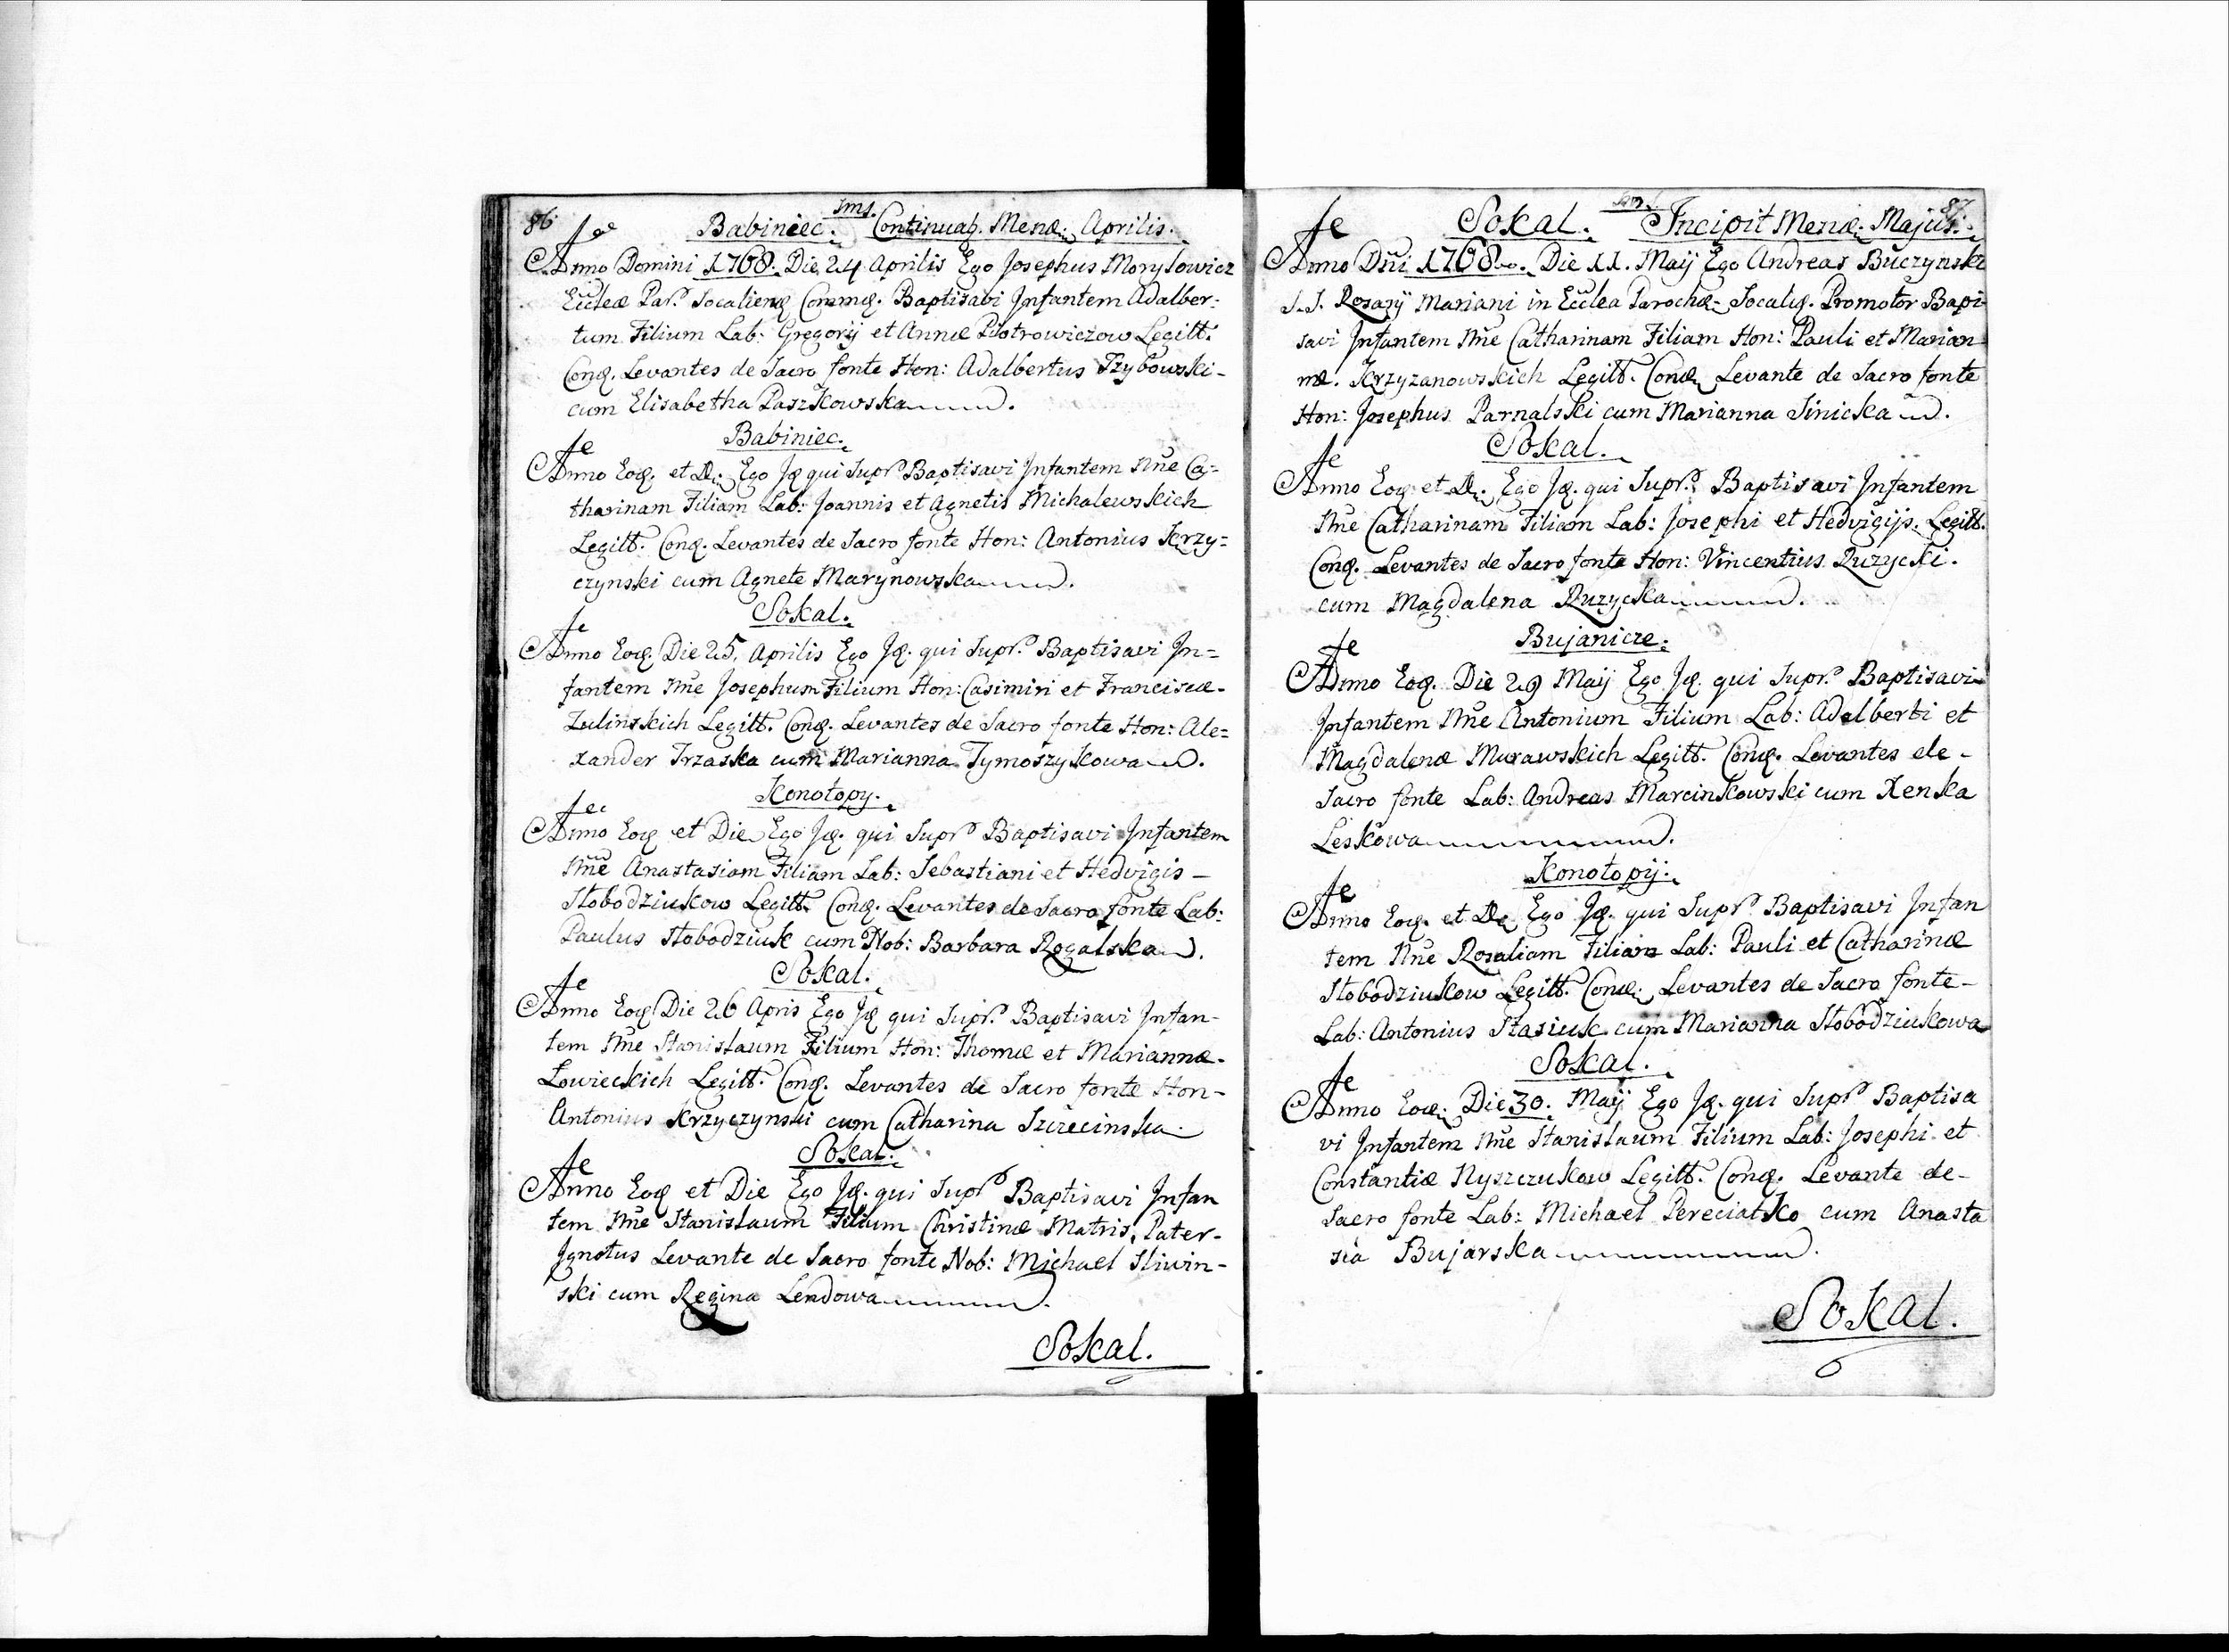 86
Jms.
Babiniec. Continuaq. Mensæ. Aprilis.
Anno Domini 1768. Die 24 Aprilis Ego Josephus Morylowicz
Eccleæ Par. Socalienq Commq. Baptisavi Infantem Adalber=
tum Filium Lab: Gregorij et Annæ Piotrowiczow Legitt.
Conq. Levantes de Sacro fonte Hon: Adalbertus Trzybowski-
cum Elisabetha Paszkowska.
Babiniec.
Anno Eoq. et D. Ego Jq qui Supr. Baptisavi Infantem Nne Ca=
tharinam Filiam Lab: Joannis et Agnetis Michalewskich
Legitt. Conq. Levantes de Sacro fonte Hon: Antonius Krzy=
czynski cum Agnete Marynowska.
Sokal.
Anno Eoq. Die 25. Aprilis Ego Jq. qui Supr. Baptisavi In=
fantem Nne Josephum Filium Hon: Casimiri et Franciscæ-
Zulinskich Legitt. Conq. Levantes de Sacro fonte Hon: Ale=
xander Trzaska cum Marianna Tymoszykowa.
Konotopy.
Anno Eoq et Die Ego Jq. qui Supr Baptisavi Infantem
Nne Anastasiam Filiam Lab: Sebastiani et Hedvigis-
Słobodziukow Legitt. Conq. Levantes de Sacro fonte Lab:
Paulus Słobodziuk cum Nob: Barbara Rogalska.
Sokal.
Anno Eoq Die 26 Apris Ego Jq qui Supr. Baptisavi Infan-
tem Nne Stanislaum Filium Hon: Thomæ et Mariannæ-
Łowieckich Legitt. Conq. Levantes de Sacro fonte Hon-
Antonius Krzyczynski cum Catharina
Sokal.
Anno Eoq et Die Ego Jq. qui Supr Baptisavi Infan
tem Nne Stanislaum Filium Christinæ Matris, Pater-
Ignotus Levante de Sacro fonte Nob: Michael Sliwin-
ski cum Regina Lendowa.
Sokal.
87.
Sokal. Incipit Mensæ. Majus.
Anno Dni 1768. Die 11. Maij Ego Andreas Buczynski
S.S. Rosarij Mariani in Ecclea Parochæ- Socaliq. Promotor Bapi-
savi Infantem Nne Catharinam Filiam Hon: Pauli et Marian-
næ. Krzyzanowskich Legitt. Conq. Levante de Sacro fonte
Hon: Josephus Parnalski cum Marianna Sinicka.
Sokal.
Anno Eoq et D. Ego Jq. qui Supr. Baptisavi Infantem
Nne Catharinam Filiam Lab: Josephi et Hedvigijs. Legitt.
Conq. Levantes de Sacro fonte Hon: Vincentius Ruzycki.
cum Magdalena Ruzycka.
Bujanicze.
Anno Eoq. Die 29 Maij Ego Jq. qui Supr. Baptisavi
Infantem Nne Antonium Filium Lab: Adalberti et
Magdalenæ Murawskich Legitt. Conq. Levantes de-
Sacro fonte Lab: Andreas Marcinkowski cum Xenka
Leskowa.
Konotopij.
Anno Eoq. et D Ego Jq. qui Supr. Baptisavi Infan
tem Nne Rosaliam Filiam Lab: Pauli et Catharinæ
Słobodziukow Legitt. Conq. Levantes de Sacro fonte-
Lab: Antonius Stasiuk cum Marianna Słobodziukowa
Sokal.
Anno Eoq. Die 30. Maij Ego Jq. qui Supr Baptisa
vi Infantem Nne Stanislaum Filium Lab: Josephi et
Constantiæ Nyszczukow Legitt. Conq. Levante de-
Sacro fonte Lab: Michael Pereciatko cum Anasta
sia Bujarska.
Sokal.